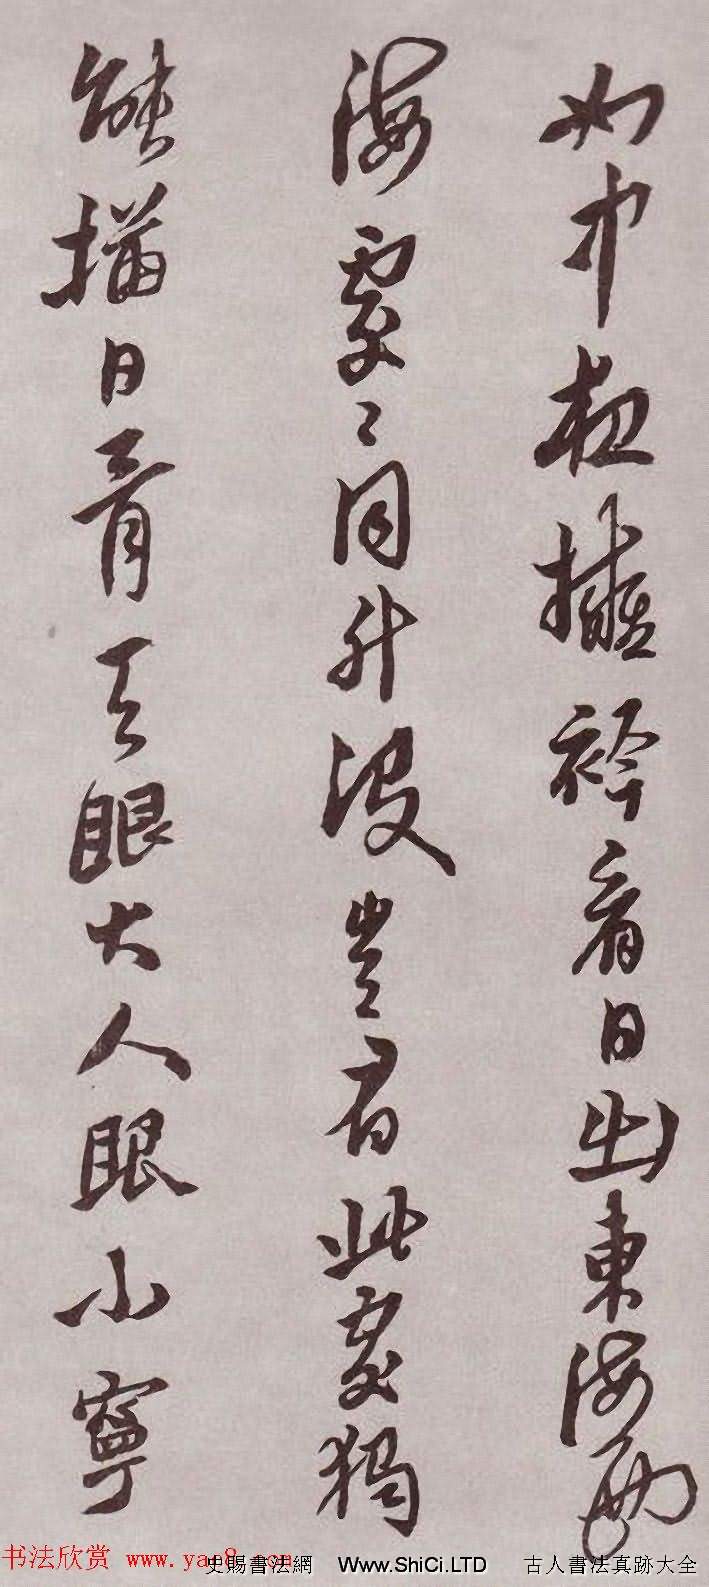 如擁衿看日出東海
海處〻同升没豈有此處獨
能描日青天眼大人眼小寧
书法欣赏 www.ya
史賜書法網 Www.ShiCi.LTD 古人書法真跡大全